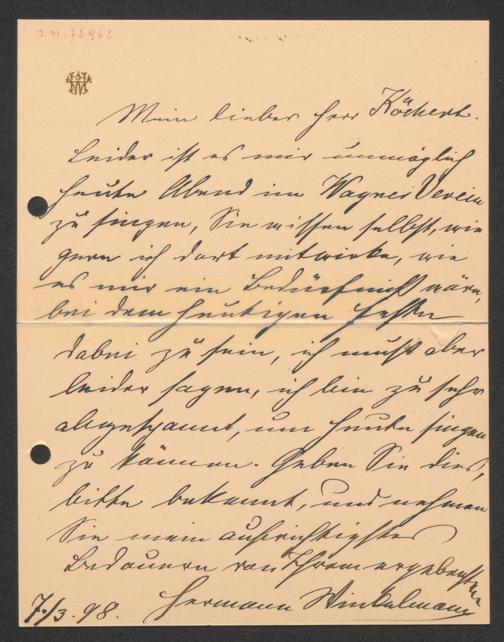 I.N. 72962
Mein lieber Herr Köchert.
Leider ist es mir unmöglich
heute Abend im Wagner Verein
zu singen, Sie wissen selbst, wie
gern ich dort mitwirke, wie
es mir ein Bedürfniß wäre,
bei dem heutigen Feste
dabei zu sein, ich muß aber
leider sagen, ich bin zu sehr
abgespannt, um heute singen
zu können. Geben Sie dies,
bitte bekannt, und nehmen
Sie mein aufrichtigstes
Bedauern von Ihrem ergebensten
Hermann Winkelmann
7./3. 98.